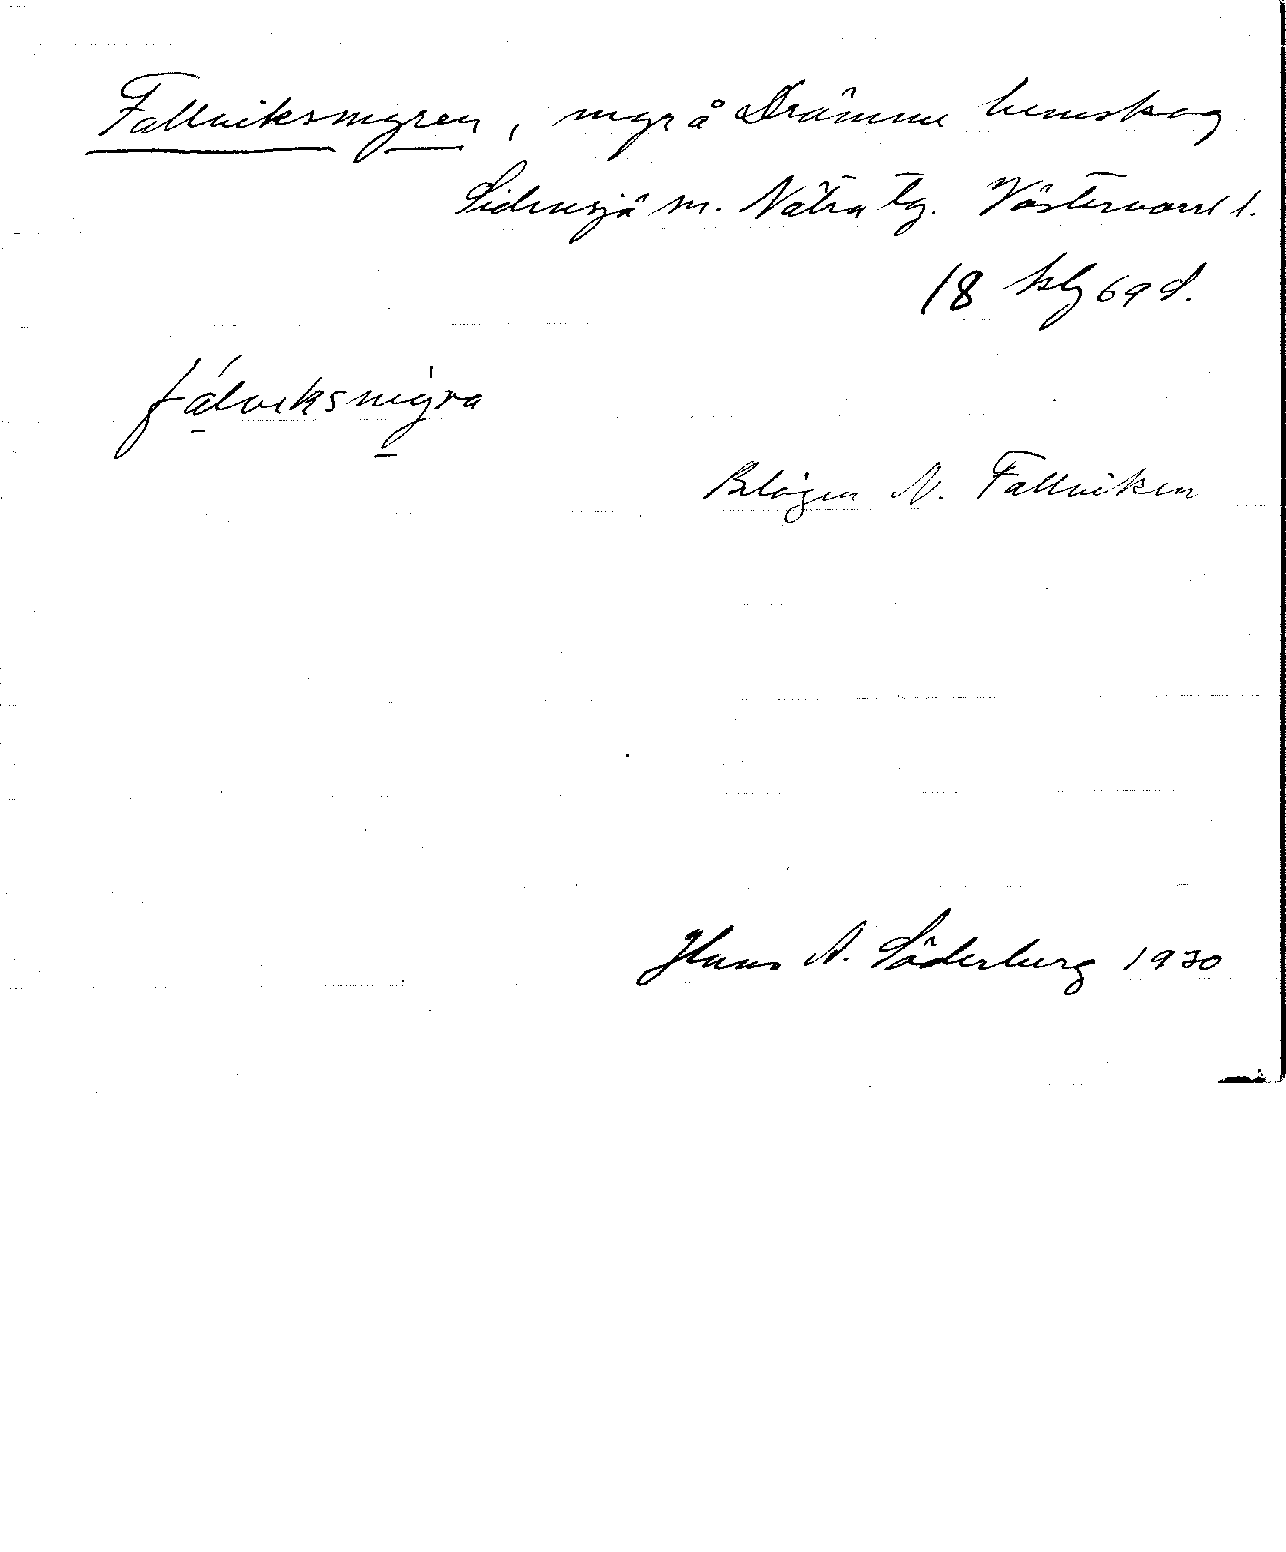 Fallviksmyren, myr å Drömme hemskog
Sidensjö sn. Nätra tg. Västernorrl l.
18 kbl 69 d.
fálviksmýra
Belägen N. Fallviken
Hans A. Söderberg 1930